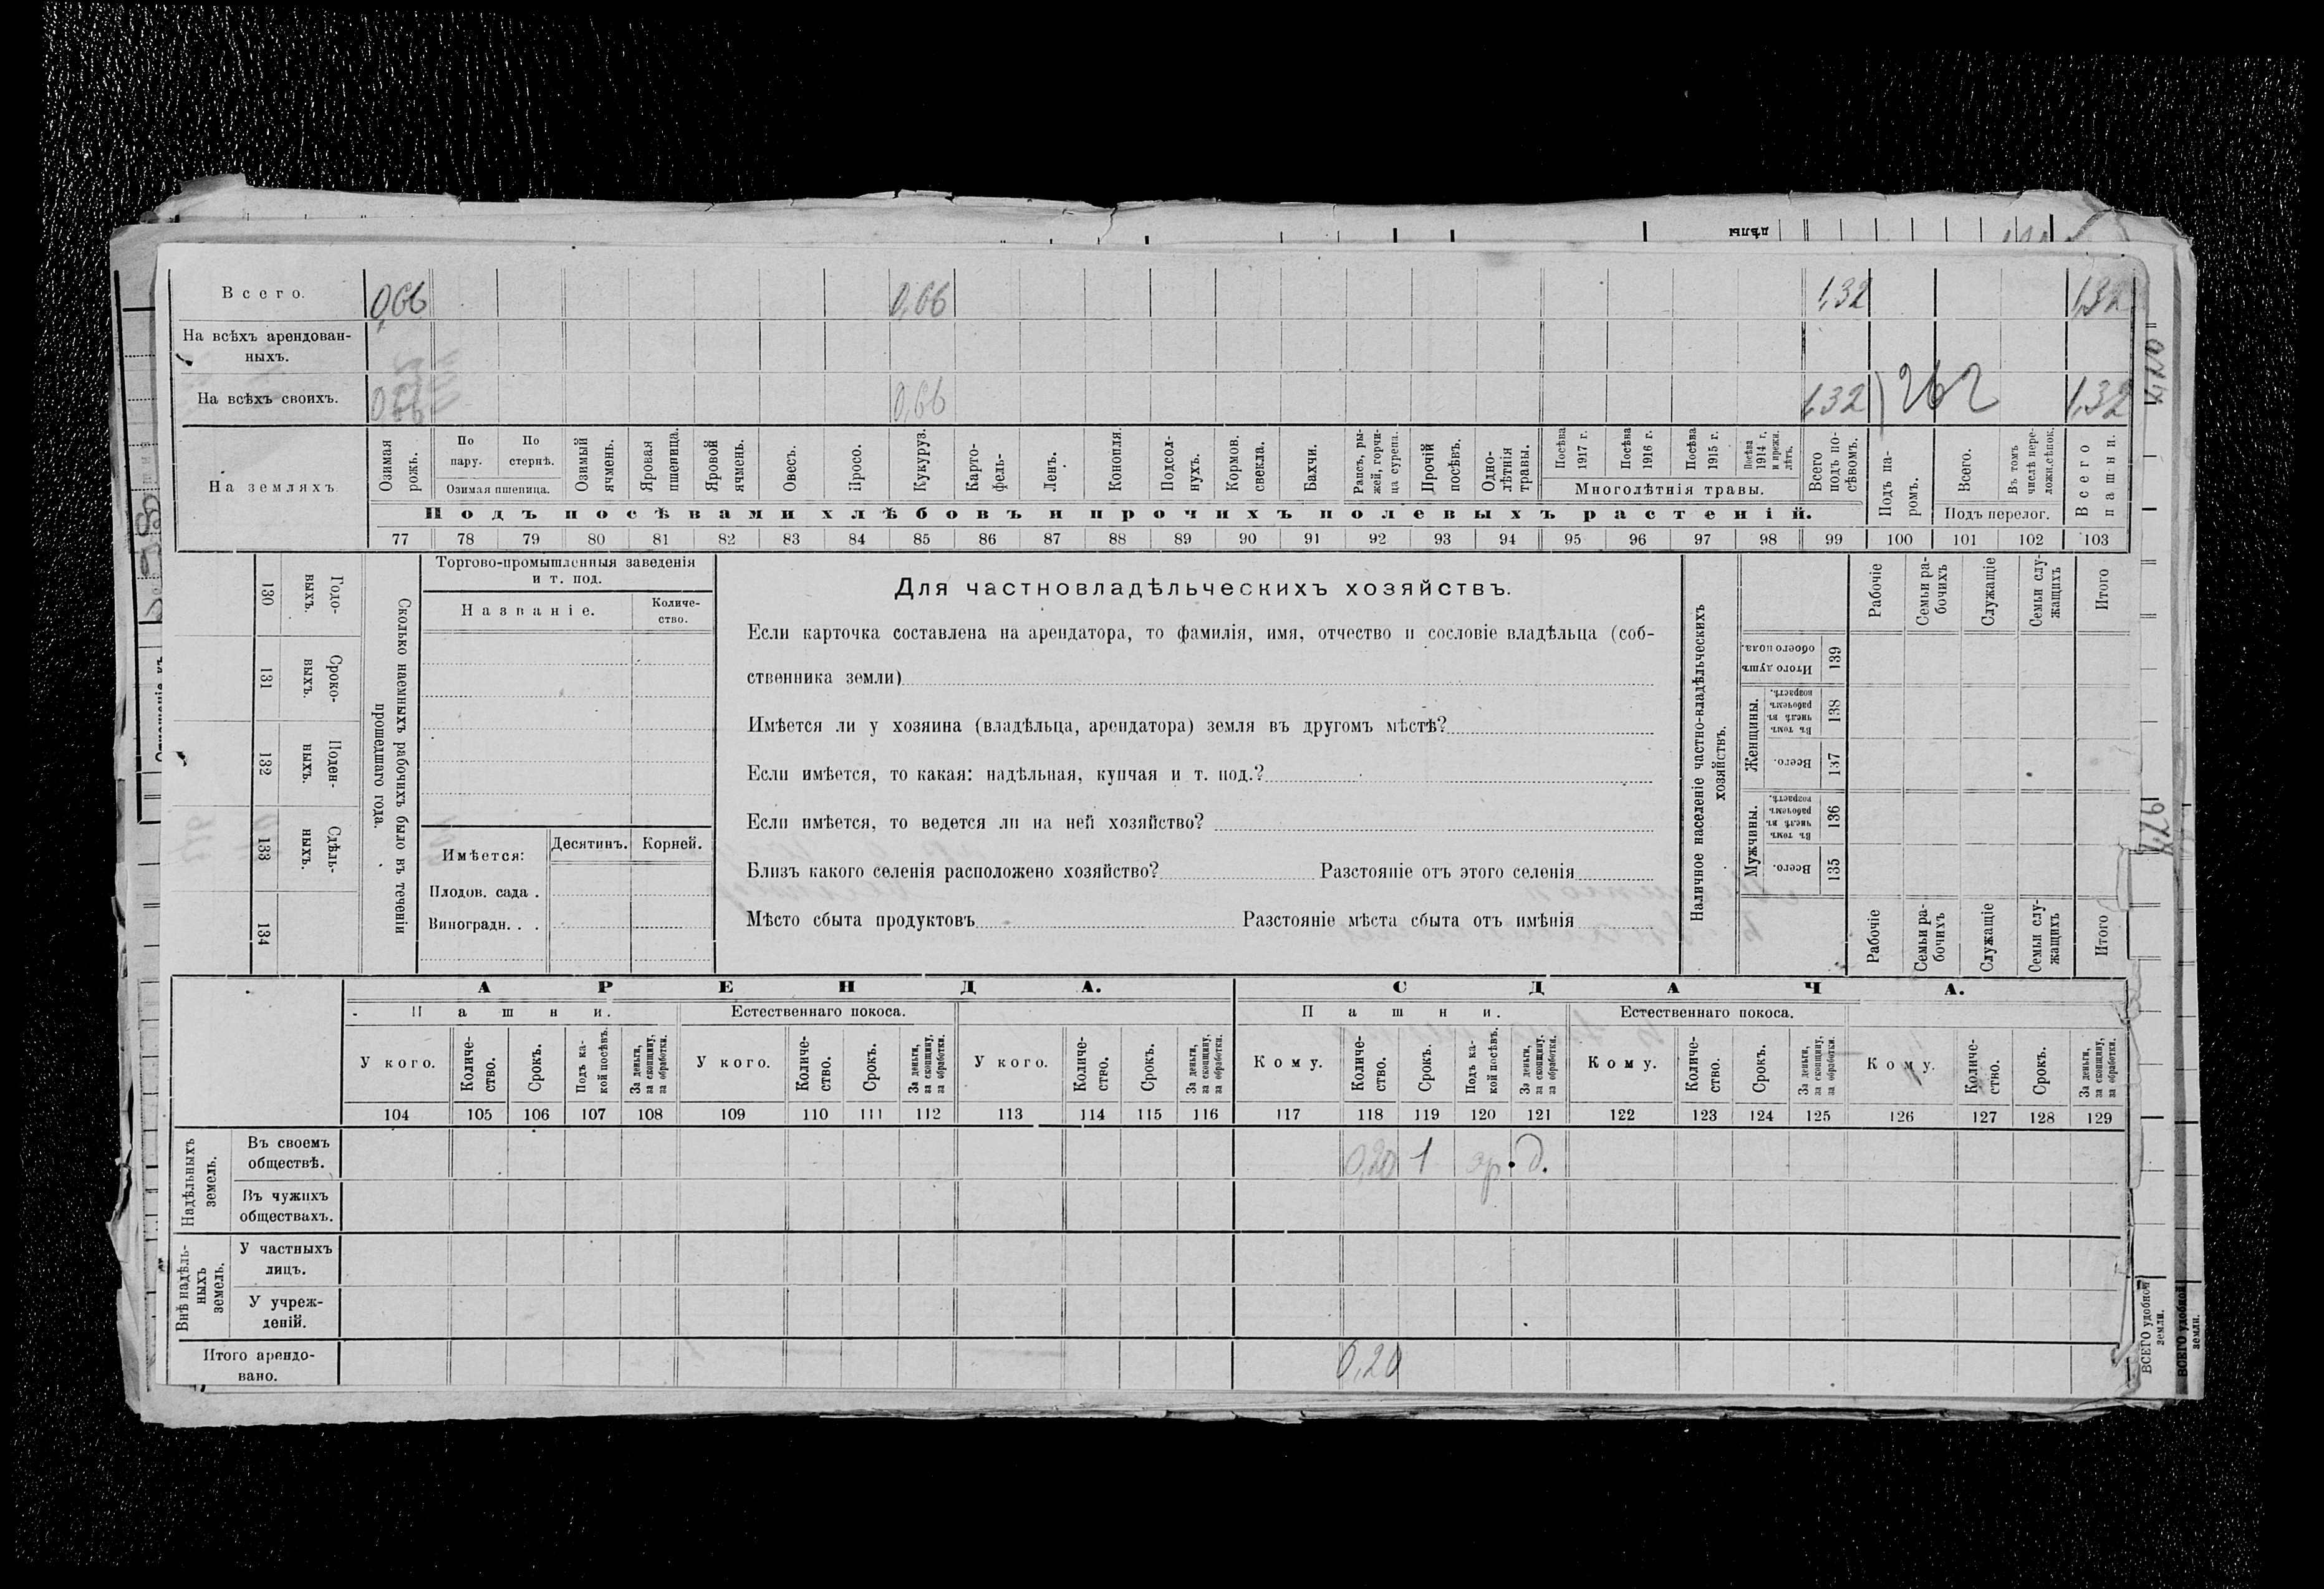 дѣлы
Всего. 0,66 0,66 1,32 1,32
На всѣхъ арендован-
ныхъ.
На всѣхъ своихъ. 0,66 0,66 1,32 262 1,32
На земляхъ
Озимая рожь.
По пару.
По стернѣ.
Озимая пшеница.
Озимый ячмень.
Яровая пшеница.
Яровой ячмень.
Овесъ.
Просо.
Кукуруз.
Карто-
фель-
Ленъ.
Конопля.
Подсол-
нухъ.
Кормов. свекла.
Бахчи.
Рапсъ, ры-
жей, горчи-
ца сурепа.
Прочій посѣвъ.
Одно-
лѣтнія травы.
Посѣва 1917 г.
Посѣва 1916 г.
Посѣва 1915 г.
Посѣва 1914 г. и прежн. лѣтъ.
Многолѣтнія травы.
Всего подъ по-
сѣвомъ.
Подъ посѣвами хлѣбовъ и прочихъ полевыхъ растеній.
Подъ па-
ромъ.
Всего.
Въ томъ числѣ пере-
ложн.сѣнок.
Подъ перелог.
Всего пашни.
77 78 79 80 81 82 83 84 85 86 87 88 89 90 91 92 93 94 95 96 97 98 99 100 101 102 103
130 131 132 133 134
Годо-
выхъ.
Сроко-
выхъ.
Поден-
ныхъ.
Сдѣль-
ныхъ.
Сколько наемныхъ рабочихъ было въ теченіи
прошедшаго года.
Торгово-промышленныя заведенія
и т. под.
Названіе.
Количе-
ство.
Имѣется: Десятинъ. Корней.
Плодов. сада .
Виноградн. . .
Для частновладѣльческихъ хозяйствъ.
Если карточка составлена на арендатора, то фамилія, имя, отчество и сословіе владѣльца (соб-
ственника земли)
Имѣется ли у хозяина (владѣльца, арендатора) земля въ другомъ мѣстѣ?
Если имѣется, то какая: надѣльная, купчая и т. под.?
Если имѣется, то ведется ли на ней хозяйство?
Близъ какого селенія расположено хозяйство? Разстояніе отъ этого селенія
Мѣсто сбыта продуктовъ Разстояніе мѣста сбыта отъ имѣнія
Наличное населеніе частно-владѣльческихъ
хозяйствъ.
Рабочіе
Семьи ра-
бочихъ
Служащіе
Семьи слу-
жащихъ
Итого
Итого душъ обоего пола. 139
Женщины.
Въ томъ числѣ въ рабочемъ возрастѣ. 138
Всего. 137
Мужчины.
Въ томъ числѣ въ рабочемъ возрастѣ. 136
Всего. 135
Рабочіе
Семьи ра-
бочихъ
Служащіе
Семьи слу-
жащихъ
Итого
АРЕНДА. СДАЧА.
Пашни. Естественнаго покоса. Пашни. Естественнаго покоса.
У кого.
Количе-
ство.
Срокъ.
Подъ ка-
кой посѣвъ.
За деньги, за скопщину, за обработки.
У кого.
Количе-
ство.
Срокъ.
За деньги, за скопщину, за обработки.
У кого.
Количе-
ство.
Срокъ.
За деньги, за скопщину, за обработки.
Кому.
Количе-
ство.
Срокъ.
Подъ ка-
кой посѣвъ.
За деньги, за скопщину, за обработки.
Кому.
Количе-
ство.
Срокъ.
За деньги, за скопщину, за обработки.
Кому.
Количе-
ство.
Срокъ.
За деньги, за скопщину, за обработки.
104 105 106 107 108 109 110 111 112 113 114 115 116 117 118 119 120 121 122 123 124 125 126 127 128 129
Надѣльныхъ земель.
Въ своемъ
обществѣ. 0,20 1 яр. д.
Въ чужихъ
обществахъ.
Внѣ надѣль-
ныхъ земель.
У частныхъ
лицъ.
У учреж-
деній.
Итого арендо-
вано. 0,20
ВСЕГО удобной земли.
ВСЕГО удобной земли.